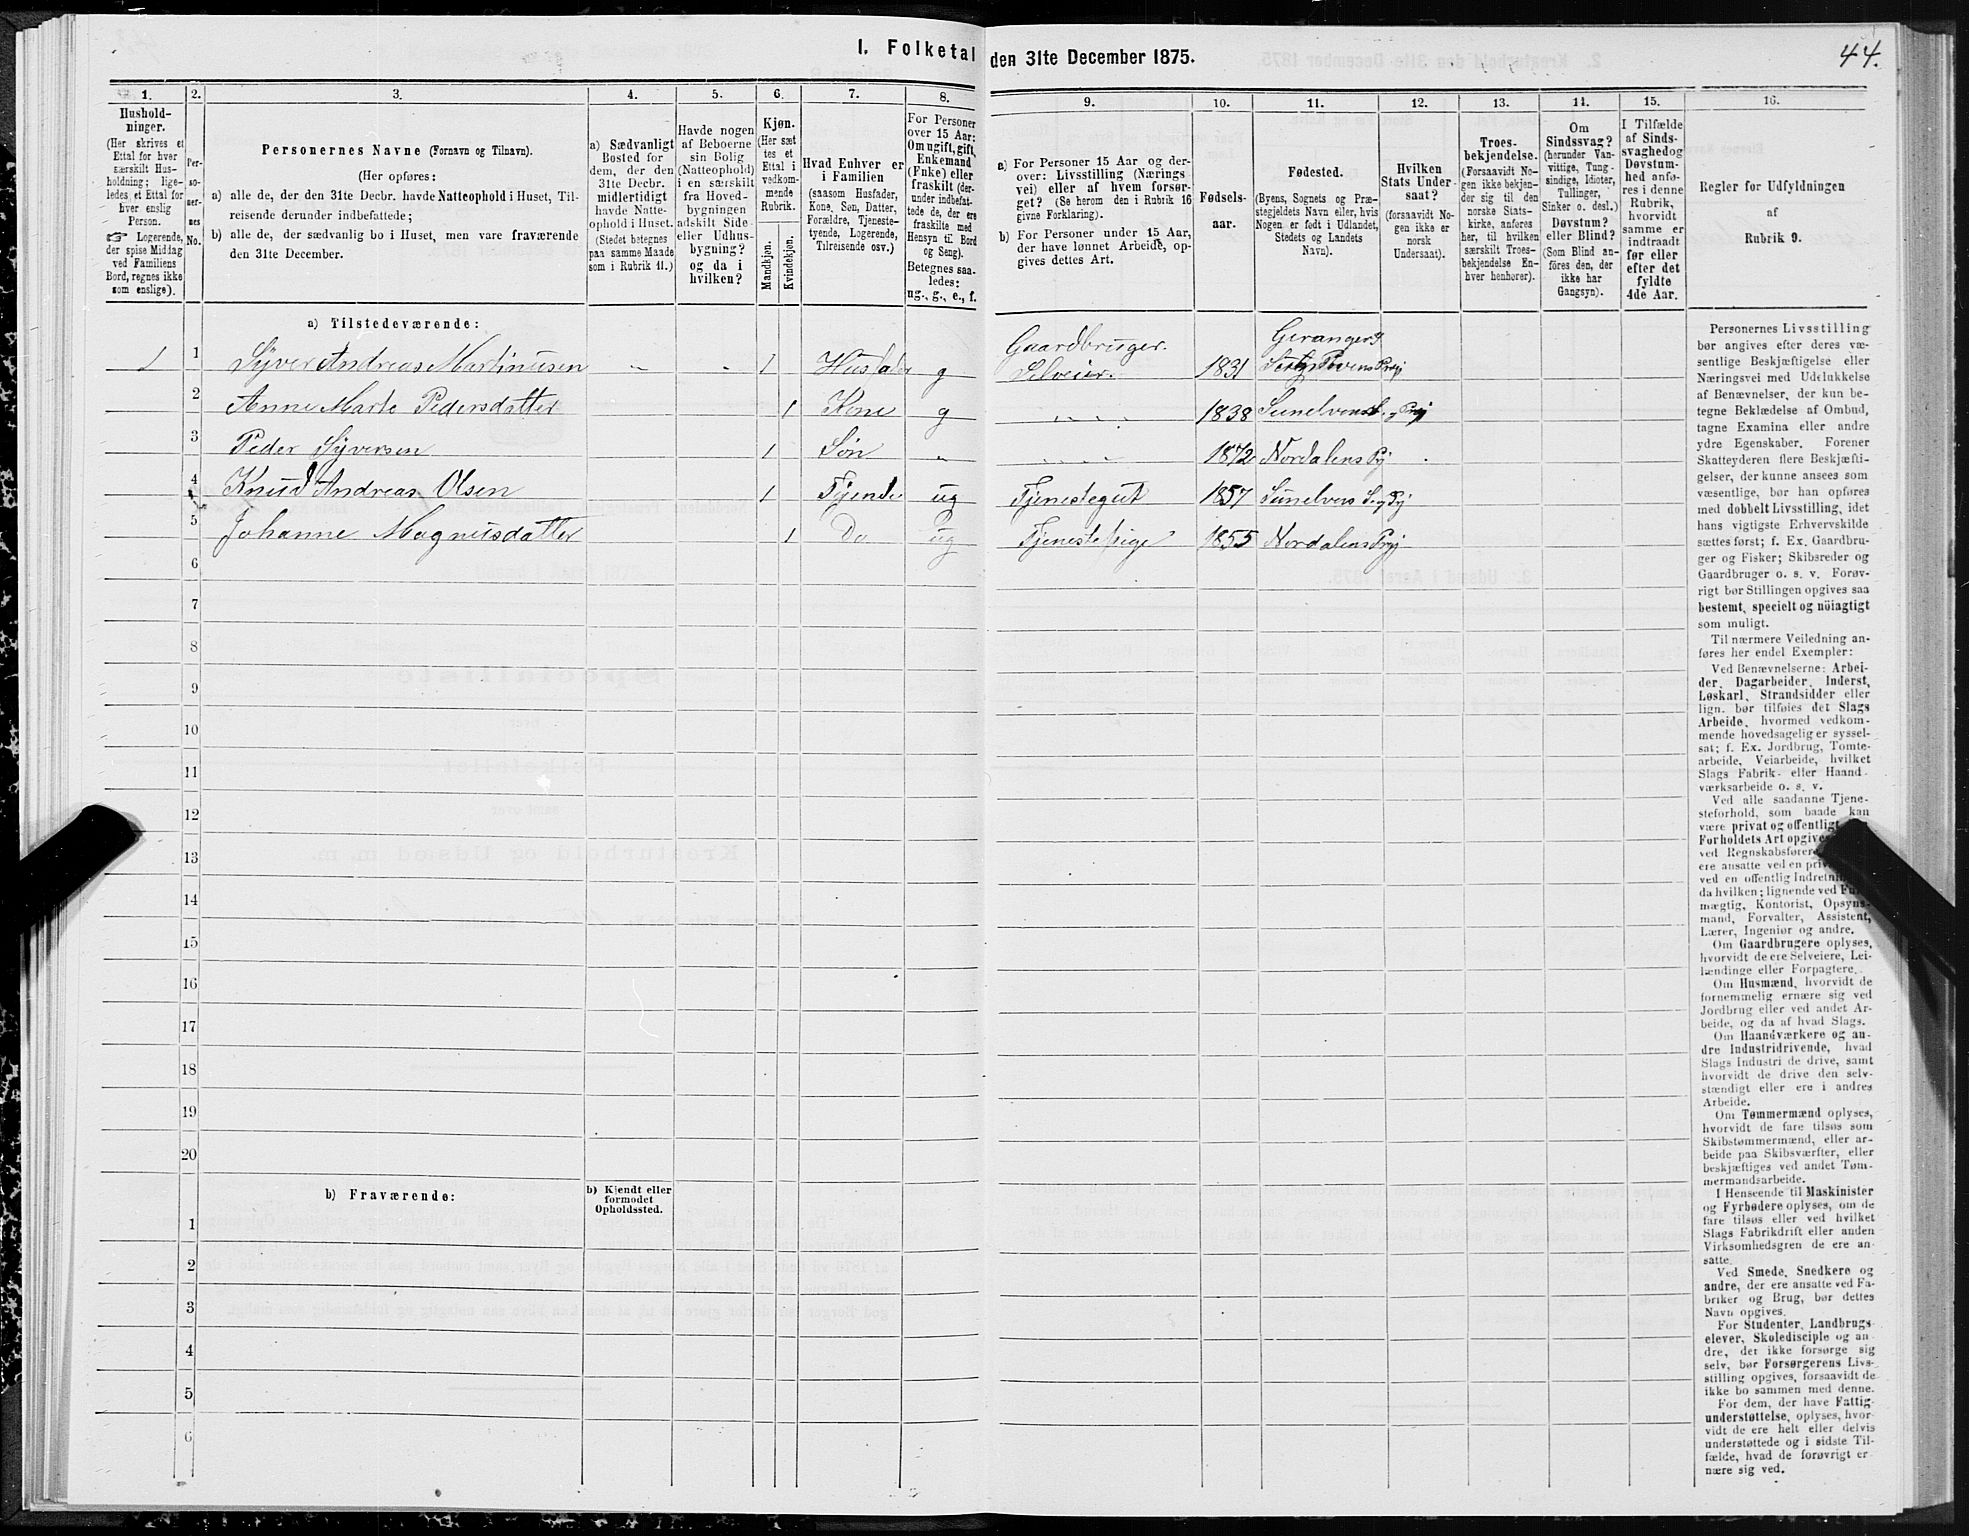 44.
I. Folketal den 31te December 1875.
1. 2. 3. 4. 5. 6. 7. 8. 9. 10. 11. 12. 13. 14. 15. 16.
Hushold-
ninger.
(Her skrives et
Ettal for hver
særskilt Hus-
holdning; lige-
ledes et Ettal for
hver enslig
Person.
☞ Logerende,
der spise Middag
ved Familiens
Bord, regnes ikke
som enslige).
Per-
so-
ner-
nes
No.
Personernes Navne (Fornavn og Tilnavn).
(Her opføres:
a) alle de, der den 31te Decbr. havde Natteophold i Huset, Til-
reisende derunder indbefattede;
b) alle de, der sædvanlig bo i Huset, men vare fraværende
den 31te December.
a) Sædvanligt
Bosted for
dem, der den
31te Decbr.
midlertidigt
havde Natte-
ophold i Huset.
(Stedet betegnes
paa samme Maade
som i Rubrik 11.)
Havde nogen
af Beboerne
sin Bolig
(Natteophold)
i en særskilt
fra Hoved-
bygningen
adskilt Side-
eller Udhus-
bygning?
og da i
hvilken?
Kjøn.
(Her sæt-
tes et
Ettal i
vedkom-
mende
Rubrik.
Mandkjøn.
Kvindekjøn.
Hvad Enhver er
i Familien
(saasom Husfader,
Kone, Søn, Datter,
Forældre, Tjeneste-
tyende, Logerende,
Tilreisende osv.)
For Personer
over 15 Aar:
Om ugift, gift,
Enkemand
(Enke) eller
fraskilt (der-
under indbefat-
tede de, der ere
fraskilte med
Hensyn til Bord
og Seng).
Betegnes saa-
ledes:
ug., g., e., f.
a) For Personer 15 Aar og der-
over: Livsstilling (Nærings
vei) eller af hvem forsør-
get? (Se herom den i Rubrik 16
givne Forklaring).
b) For Personer under 15 Aar,
der have lønnet Arbeide, op-
gives dettes Art.
Fødsels-
aar.
Fødested.
(Byens, Sognets og Præ-
stegjeldets Navn eller, hvis
Nogen er født i Udlandet,
Stedets og Landets
Navn).
Hvilken
Stats Under-
saat?
(forsaavidt No-
gen ikke er
norsk
Undersaat).
Troes-
bekjendelse.
(Forsaavidt No-
gen ikke bekjen-
der sig til den
norske Stats-
kirke, anføres
her, til hvilken
særskilt Troes-
bekjendelse En-
hver henhører).
Om
Sindssvag?
(herunder Van-
vittige, Tung-
sindige, Idioter,
Tullinger,
Sinker o. desl.)
Døvstum?
eller Blind?
(Som Blind an-
føres den, der
ikke har
Gangsyn).
I Tilfælde
af Sinds-
svaghed og
Døvstum-
hed anfø-
res i denne
Rubrik,
hvorvidt
samme er
indtraadt
før eller
efter det
fyldte
4de Aar.
Regler for Udfyldningen
af
Rubrik 9.
a) Tilstedeværende:
1 1 Syver Andreas Martinusen 1 Husfader g Gaardbruger. Selveier. 1831 Geranger S.
2 Anne Marte Pedersdatter 1 Kone g 1838
3 Peder Syversen 1 Søn 1872 Nordalens Pgj
4 Knud Andreas Olsen 1 Tjende ug Tjenestegut 1857 Sunelvens
5 Johanne Magnusdatter 1 Do ug Tjenestepige 1855 Nordalens Prgj
6
7
8
9
10
11
12
13
14
15
16
17
18
19
20
b) Fraværende:
b) Kjendt eller
formodet
Opholdssted.
1
2
3
4
5
6
Personernes Livsstilling
bør angives efter deres væ-
sentlige Beskjæftigelse eller
Næringsvei med Udelukkelse
af Benævnelser, der kun be-
tegne Beklædelse af Ombud,
tagne Examina eller andre
ydre Egenskaber. Forener
Skatteyderen flere Beskjæfti-
gelser, der kunne ansees som
væsentlige, bør han opføres
med dobbelt Livsstilling, idet
hans vigtigste Erhvervskilde
sættes først; f. Ex. Gaardbru-
ger og Fisker; Skibsreder og
Gaardbruger o. s. v. Forøv-
rigt bør Stillingen opgives saa
bestemt, specielt og nöiagtigt
som muligt.
Til nærmere Veiledning an-
føres her endel Exempler:
Ved Benævnelserne: Arbei-
der, Dagarbeider, Inderst,
Løskarl, Strandsidder eller
lign. bør tilføies det Slags
Arbeide, hvormed vedkom-
mende hovedsagelig er syssel-
sat; f. Ex. Jordbrug, Tomte-
arbeide, Veiarbeide, hvilket
Slags Fabrik- eller Haand-
værksarbeide o. s. v.
Ved alle saadanne Tjene-
steforhold, som baade kan
være privat og offentligt,
Forholdets Art opgives
ved Regnskabsførere
ere ansatte ved en priv
ved en offentlig Indretning
da hvilken; lignende ved Fuld-
mægtig, Kontorist, Opsyns-
mand, Forvalter, Assistent,
Lærer, Ingeniør og andre.
Om Gaardbrugere oplyses,
hvorvidt de ere Selveiere, Lei-
lændinge eller Forpagtere.
Om Husmænd, hvorvidt de
fornemmelig ernære sig ved
Jordbrug eller ved andet Ar-
beide, og da af hvad Slags.
Om Haandværkere og an-
dre Industridrivende, hvad
Slags Industri de drive, samt
hvorvidt de drive den selv-
stændigt eller ere i andres
Arbeide.
Om Tømmermænd oplyses,
hvorvidt de fare tilsøs som
Skibstømmermænd, eller ar-
beide paa Skibsværfter, eller
beskjæftiges ved andet Tøm-
mermandsarbeide.
I Henseende til Maskinister
og Fyrbødere oplyses, om de
fare tilsøs eller ved hvilket
Slags Fabrikdrift eller anden
Virksomhedsgren de ere an-
satte.
Ved Smede, Snedkere og
andre, der ere ansatte ved Fa-
briker og Brug, bør dettes
Navn opgives.
For Studenter, Landbrugs-
elever, Skoledisciple og an-
dre, der ikke forsørge sig
selv, bør Forsørgerens Livs-
stilling opgives, forsaavidt de
ikke bo sammen med denne.
For dem, der have Fattig-
understøttelse, oplyses, hvor-
vidt de ere helt eller delvis
understøttede og i sidste Til-
fælde, hvad de forøvrigt er-
nære sig ved.